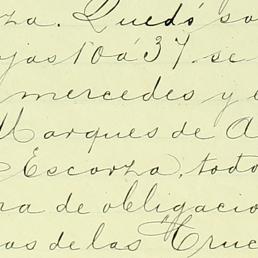 za. Quedó so
jas 10 á 37. se
mercedes y e
Marques de A
Escorza, todo
ra de obligacio
as de las Cruc